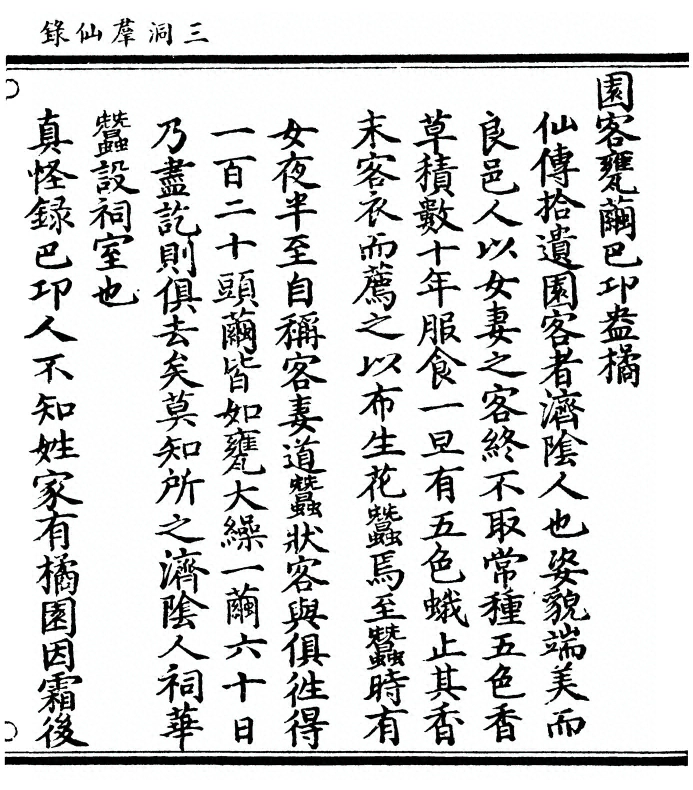 三洞羣仙錄
園客甕繭巴邛盎橘
仙傳拾遺園客者濟陰人也姿貌端美而
良邑人以女妻之客終不取常種五色香
草積數十年服食一旦有五色蛾止其香
末客衣而薦之以布生花蠶焉至蠶時有
女夜半至自稱客妻道蠶狀客與俱徃得
一百二十頭繭皆如甕大繰一繭六十日
乃盡訖則俱去矣莫知所之濟隂人祠華
蠶設祠室也
真怪録巴邛人不知姓家有橘園因霜後